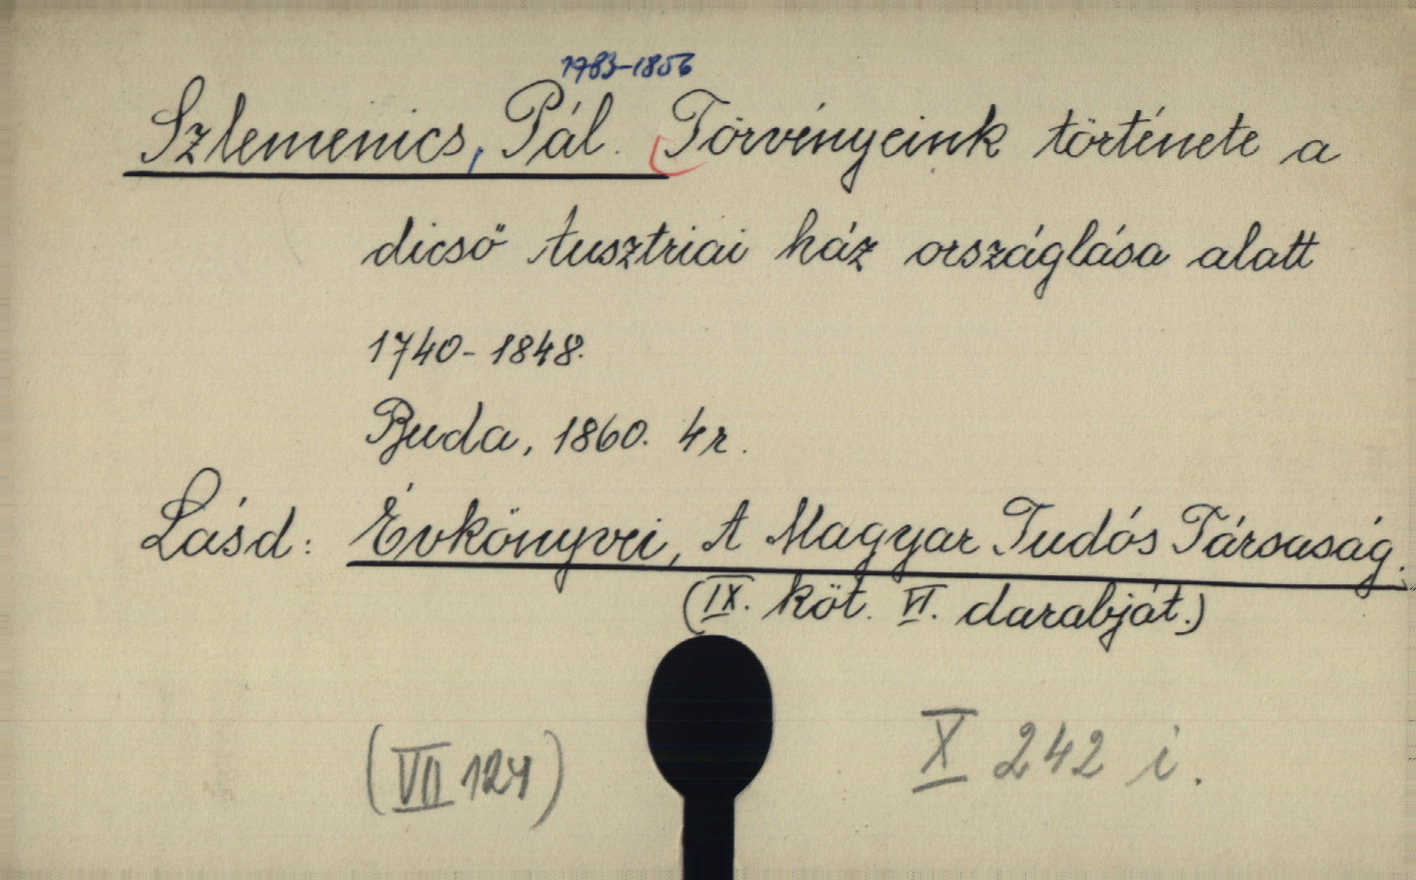 1783-1856
Szlemenics, Pál. Törvényeink története a
dicső Ausztriai ház országlása alatt
1740-1848.
Buda, 1860. 4r.
Lásd: Évkönyvei, A Magyar Tudós Társaság.
(IX. köt. VI. darabját.)
(VII 124)
X 242 i.